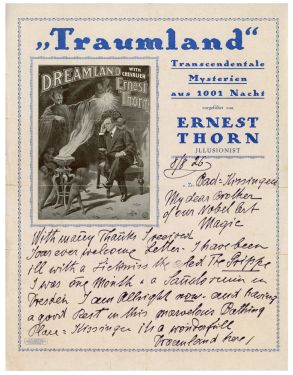 „Traumland“
Transcendentale
Mysterien
aus 1001 Nacht
vorgeführt von
ERNEST
THORN
JLLUSIONIST
DREAMLAND
WITH
CHEVALIER
Ernest
Thorn
8/8 26
z. Zt. Bad=Kissingen
My dear Brother
of our Nobel Art
Magic
With many Thanks I received
Your ever welcome Letter. I have been
ill with a Sickniss the called The Grippe
I was one Month in a Sanatorium in
Dresden I am Allright now and having
a good Rest in this marvelous Bathing
Place = Kissingen its a wonderfull
Dreamland here,